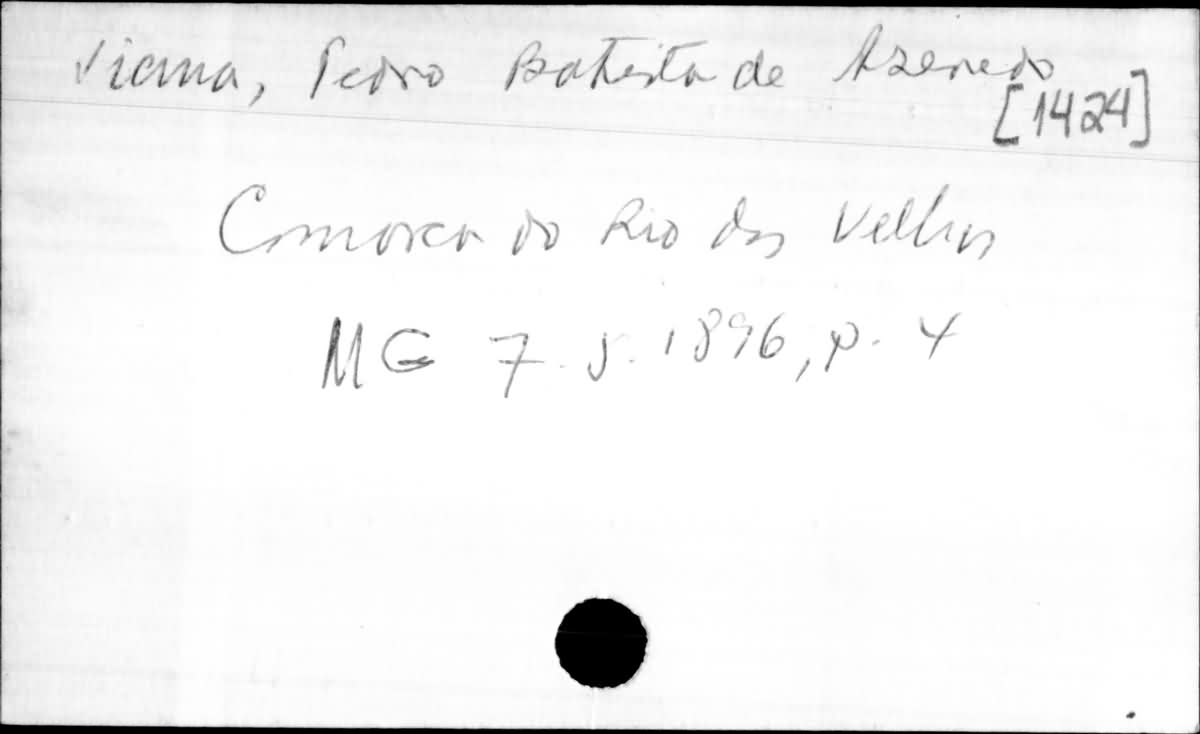 Viana, Pedro Batista de Azeredo
[1424]
Comarca do Rio das Velhas
MG 7.5.1896, p. 4